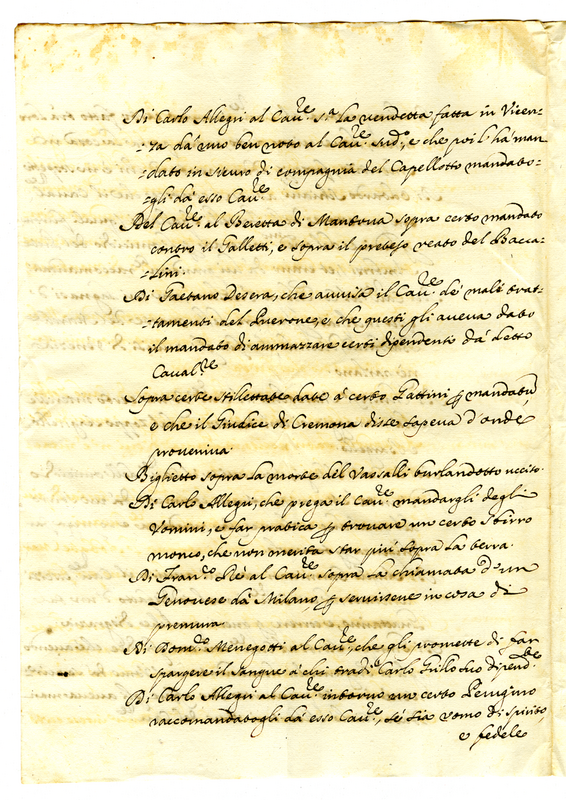 Di Carlo Allegri al Cau.re S.a la vendetta fatta in Vicen-
-za dá uno ben noto al Cau.re Sud.o, e che poi l'há man
-dato in sicuro di compagnia del Capellotto mandato-
-gli dá esso Cau.re
Del Cau.re al Beretta di Mantova sopra certo mandato
contro il Galletti, e sopra il preteso reato del Bacca-
-lini.
Di Gaetano Desera, che auuisa il Cau.re de' mali trat-
-tamenti del Pverone, e che questi gli aueua dato
il mandato di ammazzare certi dipendenti dá detto
Caual.re
Sopra certe stilettate date á certo Pattini ꝑ mandato,
e che il Giudice di Cremona disse sapeua d'onde
proueniua
Biglietto sopra la morte del Vassalli burlandotto ucciso.
Di Carlo Allegri, che prega il Cau.re mandargli degli
Vomini, e far pratica ꝑ trouare un certo Sbirro
monco, che non merita star piú sopra la terra.
Di Fran.co Ré al Cau.re sopra la chiamata d'un
Genouese dá Milano ꝑ seruirsene in cosa di
premura
Di Dom.co Menegotti al Cau.re, che gli promette di far
spargere il sangue á chi tradí Carlo Grillo suo dipend.te
Di Carlo Allegri al Cau.re intorno un certo Perugino
raccomandatogli dá esso Cau.re, sé sia uomo di spirito,
e fedele